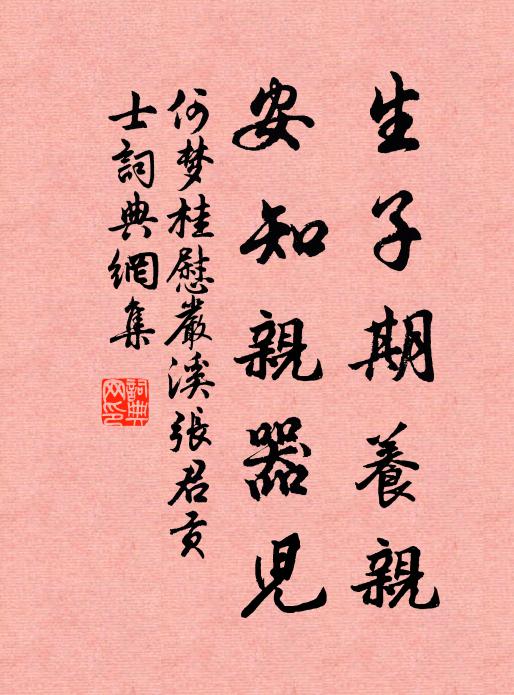 生子期養親
安知親器児
何梦桂慰嚴溪張君貢
士詞典網集
詞典網印